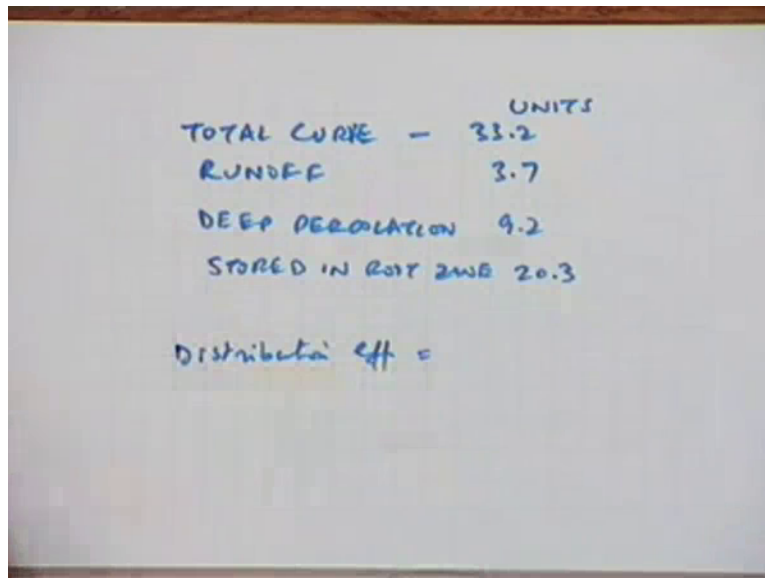 UNITS
TOTAL CURVE - 33.2
RUNOFF 3.7
DEEP PERCOLATION 9.2
STORED IN ROOT ZONE 20.3
Distribution eff =